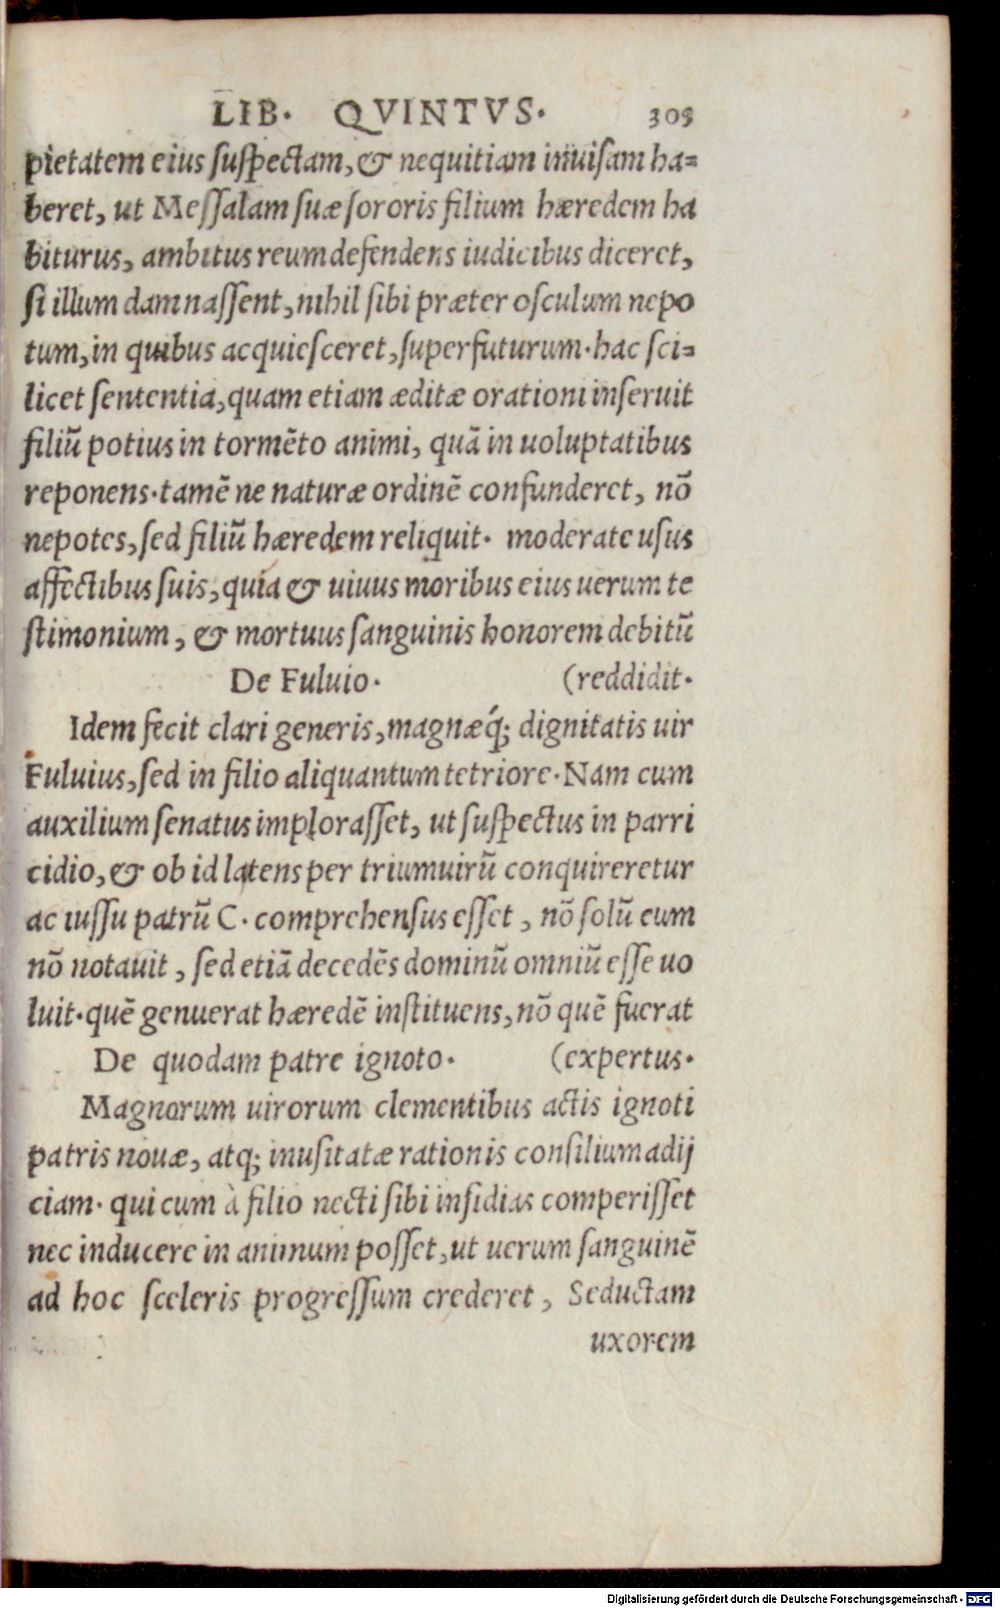 LIB. QVINTVS. 305
pietatem eius suspectam, & nequitiam inuisam ha=
beret, ut Messalam suæ sororis filium hæredem ha
biturus, ambitus reum defendens iudicibus diceret,
si illum damnassent, nihil sibi præter osculum nepo
tum, in quibus acquiesceret, superfuturum. hac sci=
licet sententia, quam etiam æditæ orationi inseruit
filiũ potius in tormẽto animi, quã in uoluptatibus
reponens. tamẽ ne naturæ ordinẽ confunderet, nõ
nepotes, sed filiũ hæredem reliquit. moderate usus
affectibus suis, quia & uiuus moribus eius uerum te
stimonium, & mortuus sanguinis honorem debitũ
De Fuluio. (reddidit.
Idem fecit clari generis, magnæq́; dignitatis uir
Fuluius, sed in filio aliquantum tetriore. Nam cum
auxilium senatus implorasset, ut suspectus in parri
cidio, & ob id latens per triumuirũ conquireretur
ac iussu patrũ C. comprehensus esset, nõ solũ eum
nõ notauit, sed etiã decedẽs dominũ omniũ esse uo
luit. quẽ genuerat hæredẽ instituens, nõ quẽ fuerat
De quodam patre ignoto. (expertus.
Magnorum uirorum clementibus actis ignoti
patris nouæ, atq; inusitatæ rationis consilium adij
ciam. qui cum à filio necti sibi insidias comperisset
nec inducere in animum posset, ut uerum sanguinẽ
ad hoc sceleris progressum crederet, Seductam
uxorem
Digitalisierung gefördert durch die Deutsche Forschungsgemeinschaft - DFG